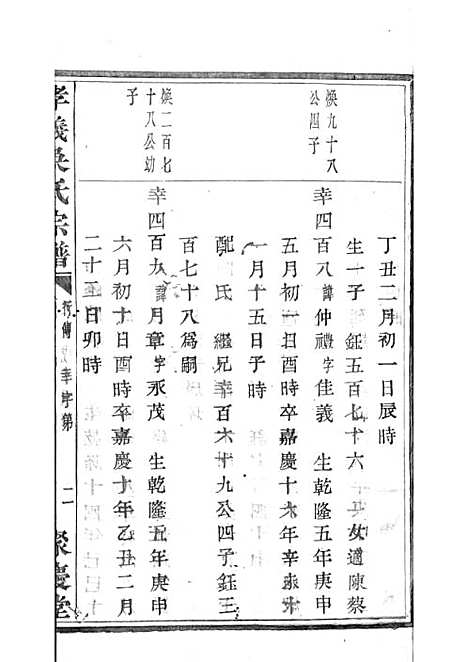 丁丑二月初一日辰時
生一子 鈺五百七十六 女適陳蔡
煥九十八
公四子
幸四百八諱仲禮字佳義 生乾隆五年庚申
五月初一日酉時卒嘉慶十六年辛未十
一月十五日子時
配 氏 繼兄幸百六十九公四子鈺三
百七十八爲嗣
煥二百七
十八公幼
子
幸四百九諱月章字永茂 生乾隆五年庚申
六月初十日酉時卒嘉慶十年乙丑二月
二十五日卯時
孝義吳氏宗譜
行傳 幸字第
二
聚慶堂